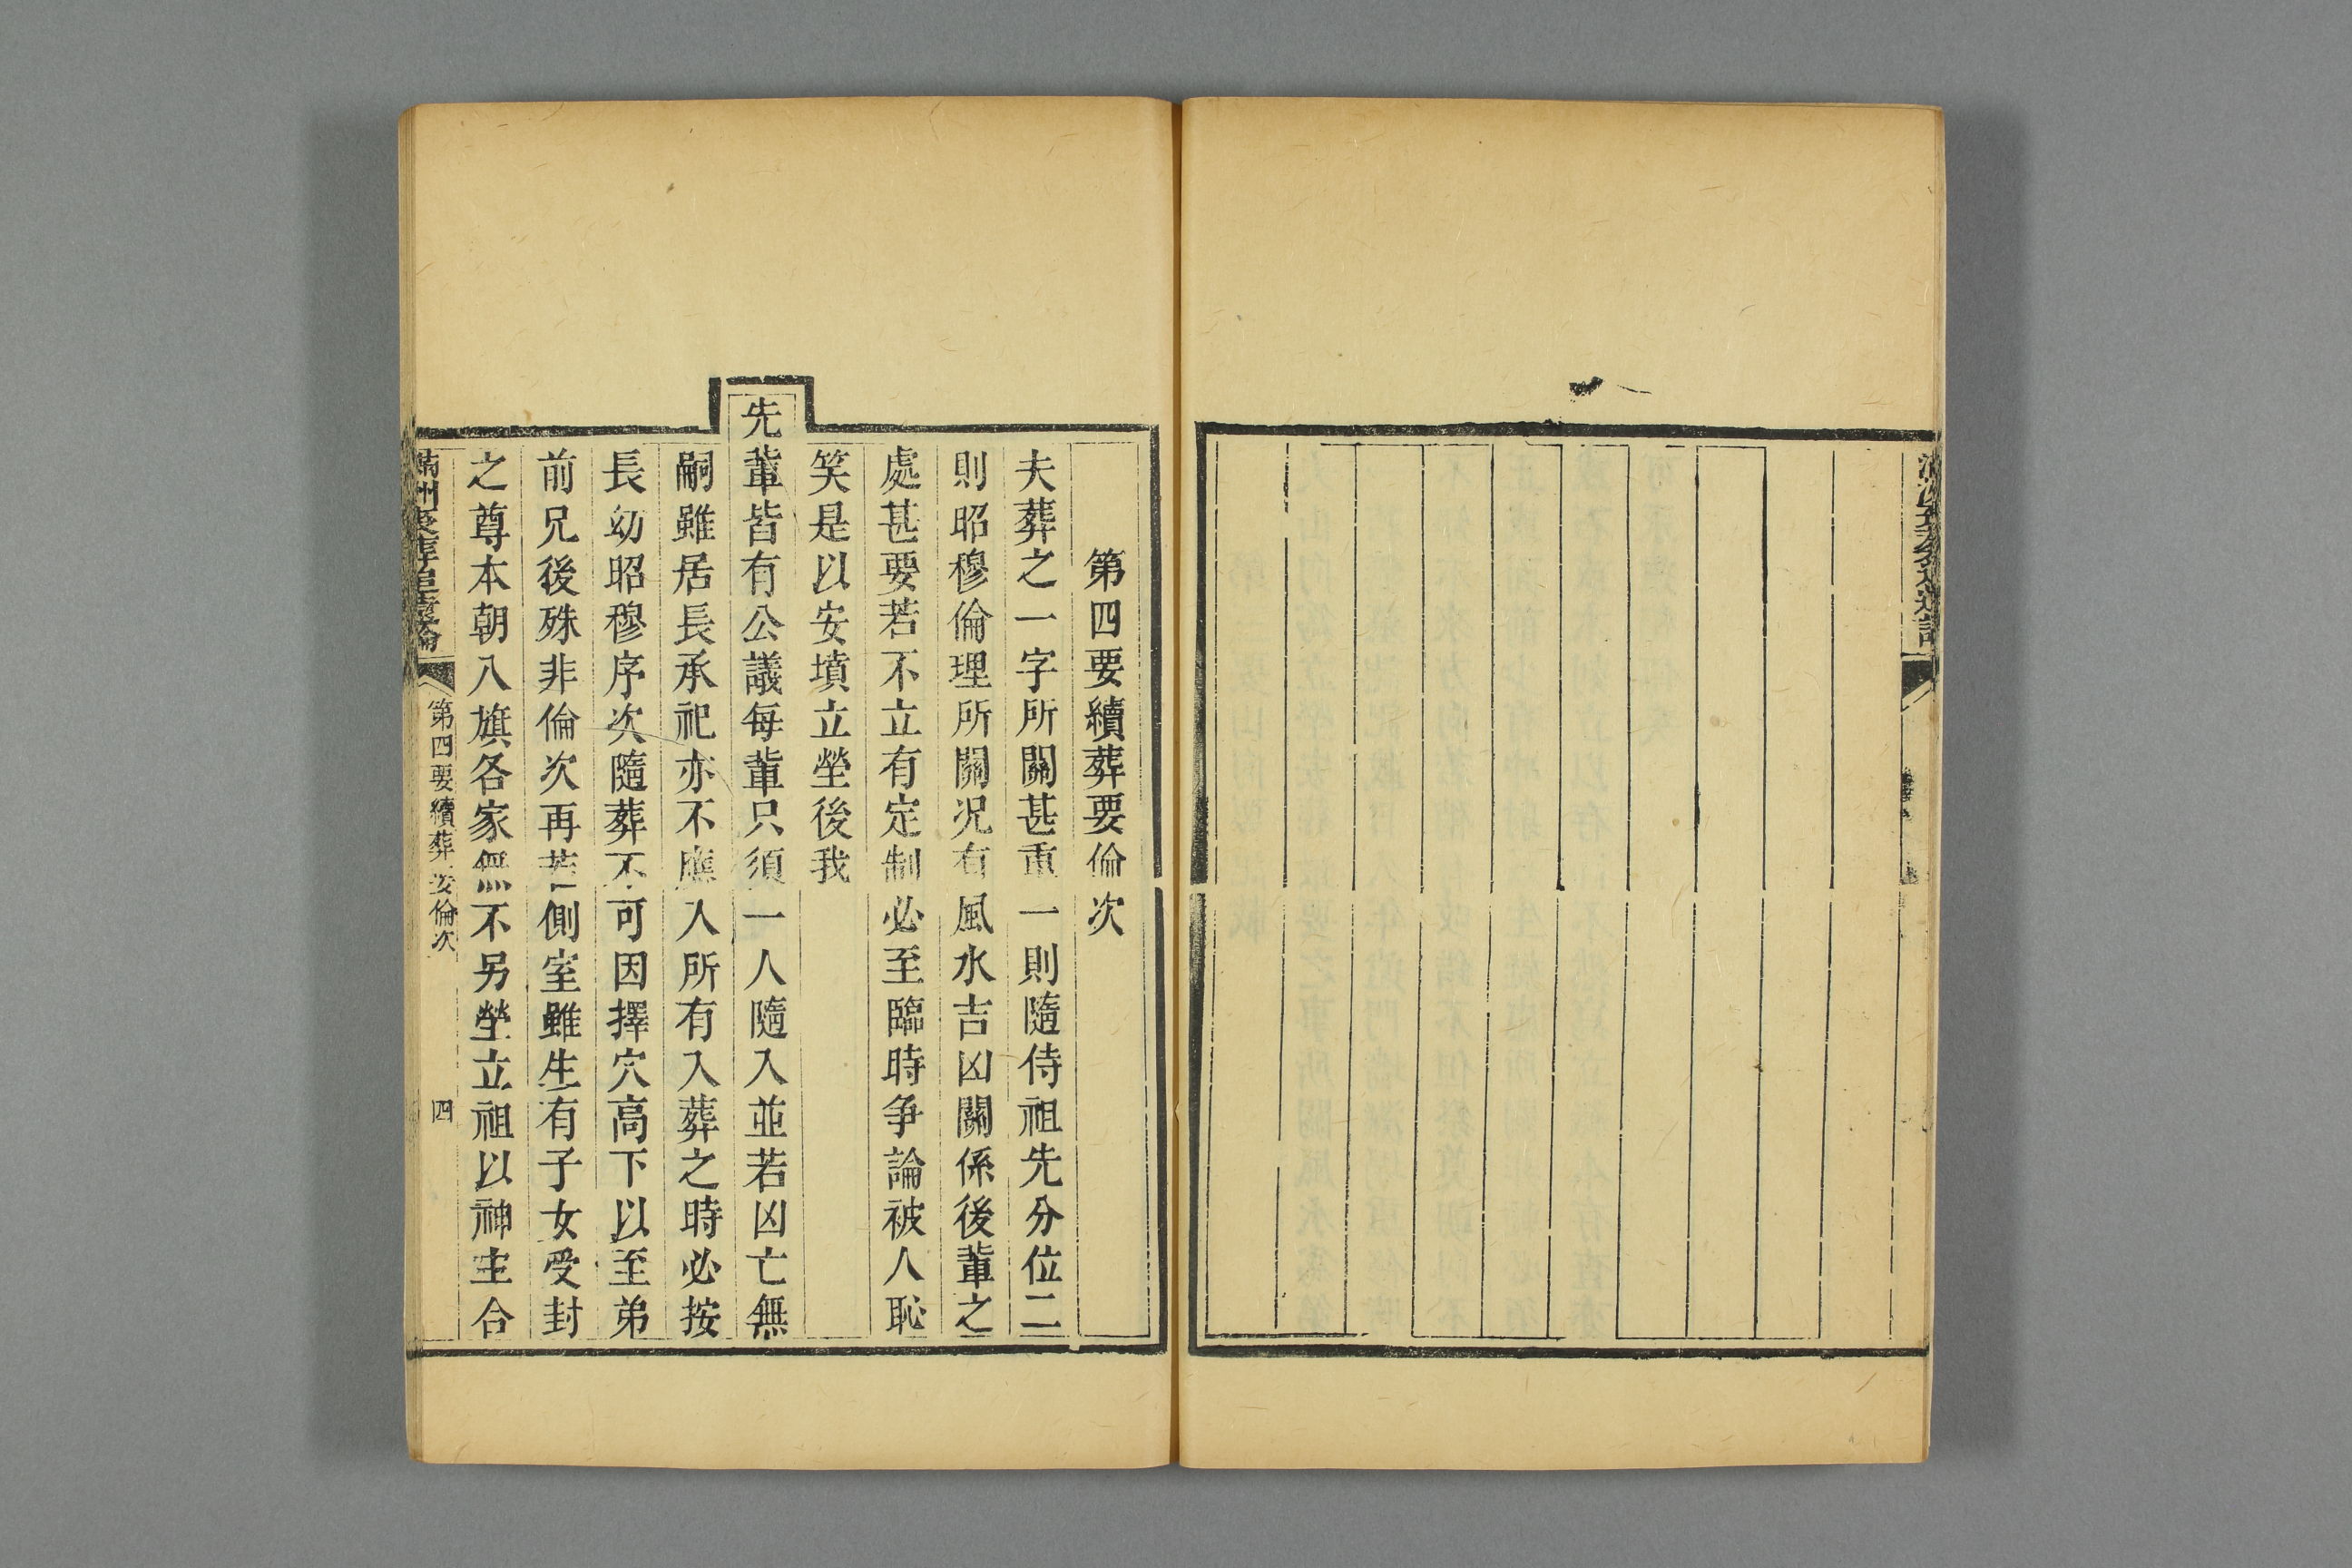 第四要續葬要倫次
夫葬之一字所關甚重一則隨侍祖先分位二
則昭穆倫理所關况有風水吉凶關係後輩之
處甚要若不立有定制必至臨時爭論被人恥
笑是以安墳立塋後我
先輩皆有公議每輩只須一人隨入並若凶亡無
嗣雖居長承祀亦不應入所有入葬之時必按
長幼昭穆序次隨葬不可因擇穴高下以至弟
前兄後殊非倫次再若側室雖生有子女受封
之尊本朝八旗各家無不另塋立祖以神主合
第四要續葬要倫次
四